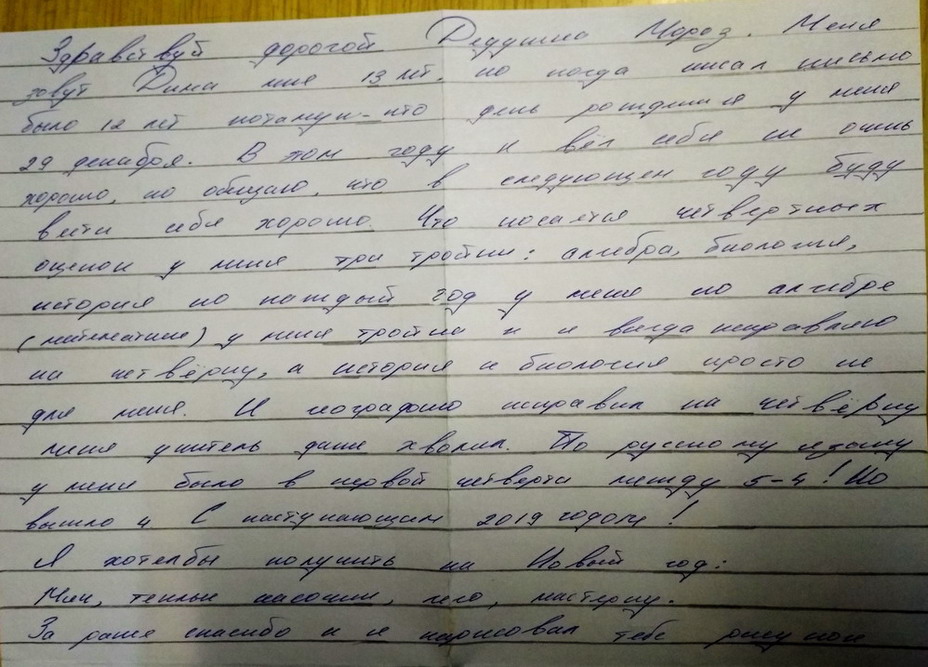 Здравствуй дорогой Дедушка Мороз. Меня
зовут Дима мне 13 лет, но когда писал письмо
было 12 лет потамун-что день рождения у меня
29 декабря. В том году я вёл себя не очень
хорошо, но обищаю, что в следующем году буду
вести себя хорошо. Что косается четвертных
оценок у меня три тройки: алгебра, биология,
история но каждый год у меня по алгебре
(математике) у меня тройка и я всегда исправляю
на четвёрку, а история и биология просто не
для меня. И географию исправил на четвёрку
меня учитель даже хвалил. По русскому языку
у меня было в первой четверти между 5-4! Но
вышло 4 С наступающим 2019 годом!
Я хотелбы получить на Новый год:
Мяч, теплые носочки, лего, мастерку.
За ранее спасибо и я нарисовал тебе рисунок